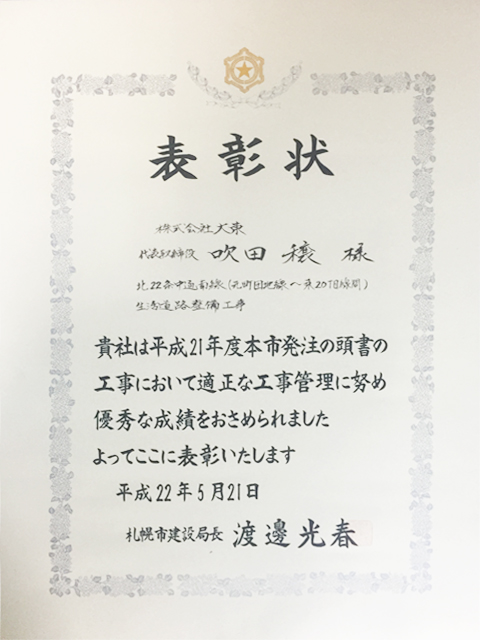 表彰状
株式会社大東
代表取締役 吹田穣 様
北22条中通南線(元町団地線～東20丁目線間)
生活道路整備工事
貴社は平成21年度本市発注の頭書の
工事において適正な工事管理に努め
優秀な成績をおさめられました
よってここに表彰いたします
平成22年5月21日
札幌市建設局長 渡邊光春